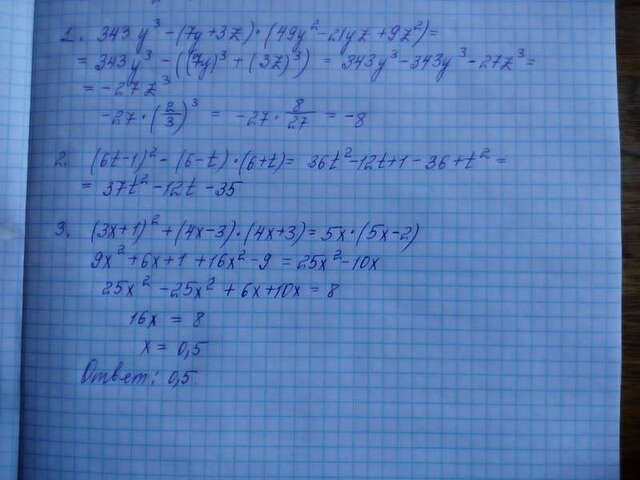 1. 343y³ - (7y+3z)·(49y²-21yz+9z²)=
= 343y³ - ((7y)³ + (3z)³) = 343y³-343y³-27z³=
= -27z³
-27·(2/3)³ = -27·8/27 = -8
2. (6t-1)² - (6-t)·(6+t)= 36t²-12t+1-36+t²=
= 37t²-12t-35
3. (3x+1)²+(4x-3)·(4x+3)=5x·(5x-2)
9x²+6x+1+16x²-9=25x²-10x
25x²-25x²+6x+10x=8
16x = 8
x = 0,5
Ответ: 0,5.